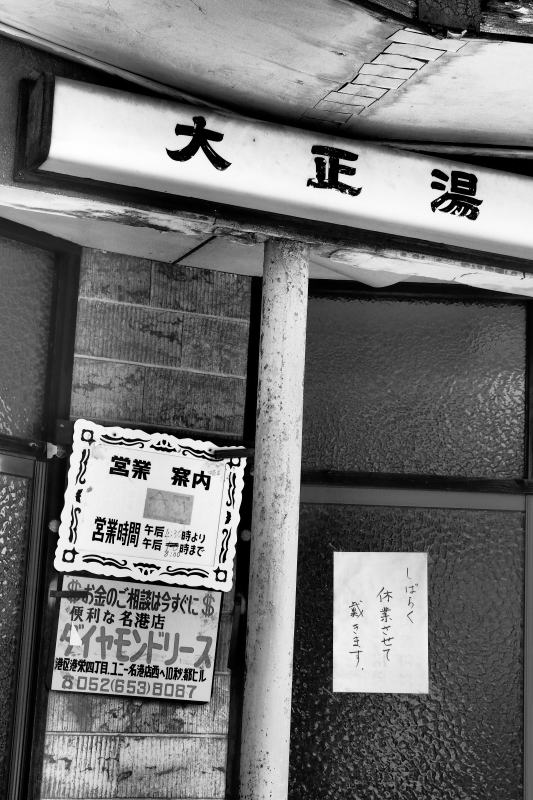 大正湯
営業案内
営業時間
午后 時より
午后 8:00 時まで
$お金のご相談は今すぐに$
便利な名港店
ダイヤモンドリース
港区港栄四丁目.ユニー名港店西へ10秒.都ビル
☎052(653)8087
しばらく
休業させて
戴きます。